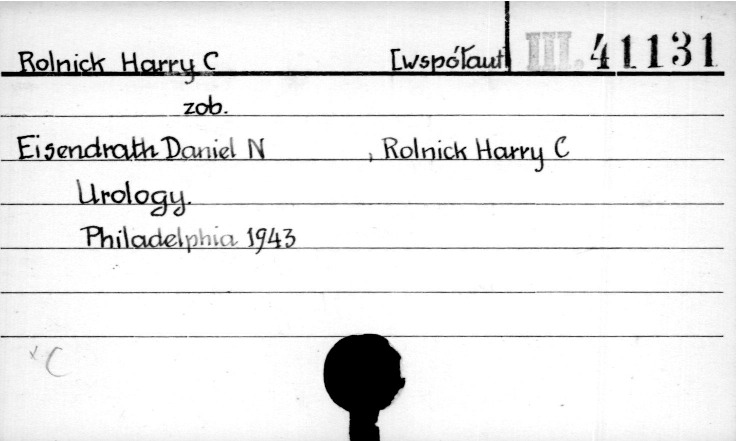 Rolnick Harry C [współaut III. 41131
zob.
Eisendrath Daniel N , Rolnick Harry C
Urology.
Philadelphia 1943
x C